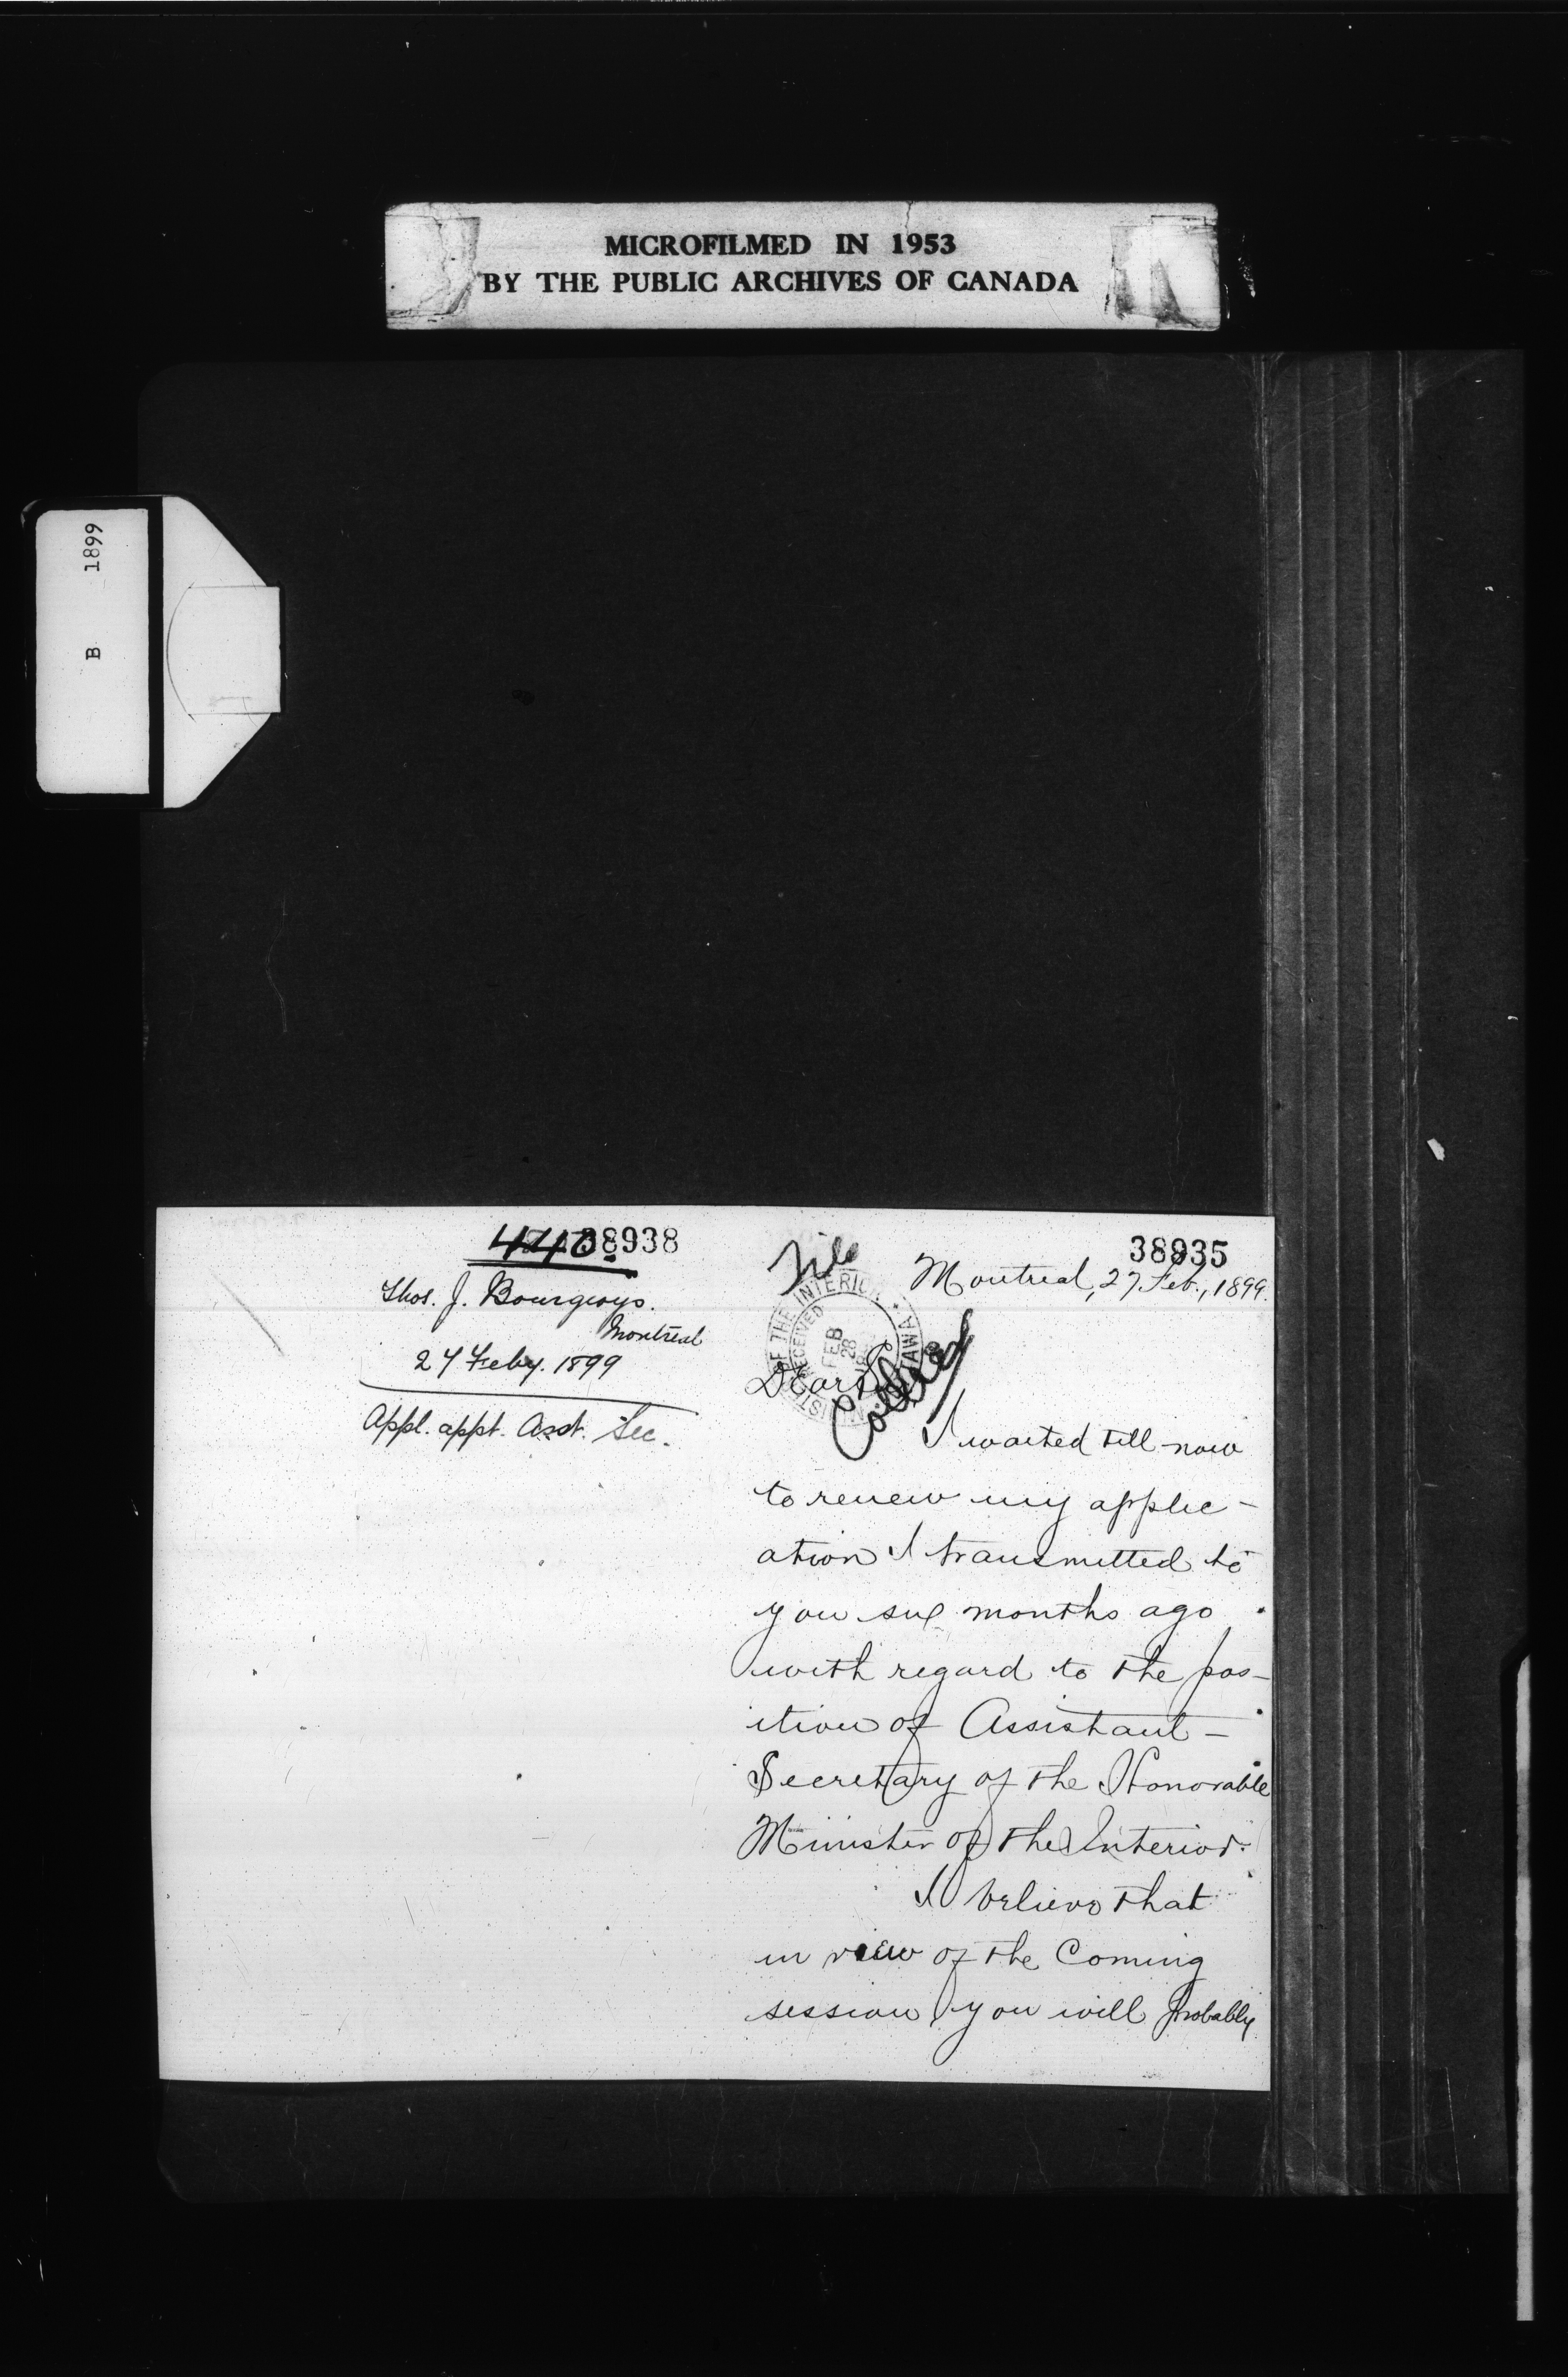 MICROFILMED IN 1953
BY THE PUBLIC ARCHIVES OF CANADA
B 1899
38938
Thos. J. Bourgeoys.
Montreal
27 Feby. 1899
Appl. appt. Asst. Sec.
38935
File
Montreal, 27 Feb., 1899.
OF THE INTERIOR
RECEIVED
FEB
28
Dear Sir
I waited till now
to renew my applic-
ation I transmitted to
you six months ago
with regard to the pos-
ition of Assistant-
Secretary of the Honorable
Minister of the Interior.
I believe that
in view of the Coming
session you will probably